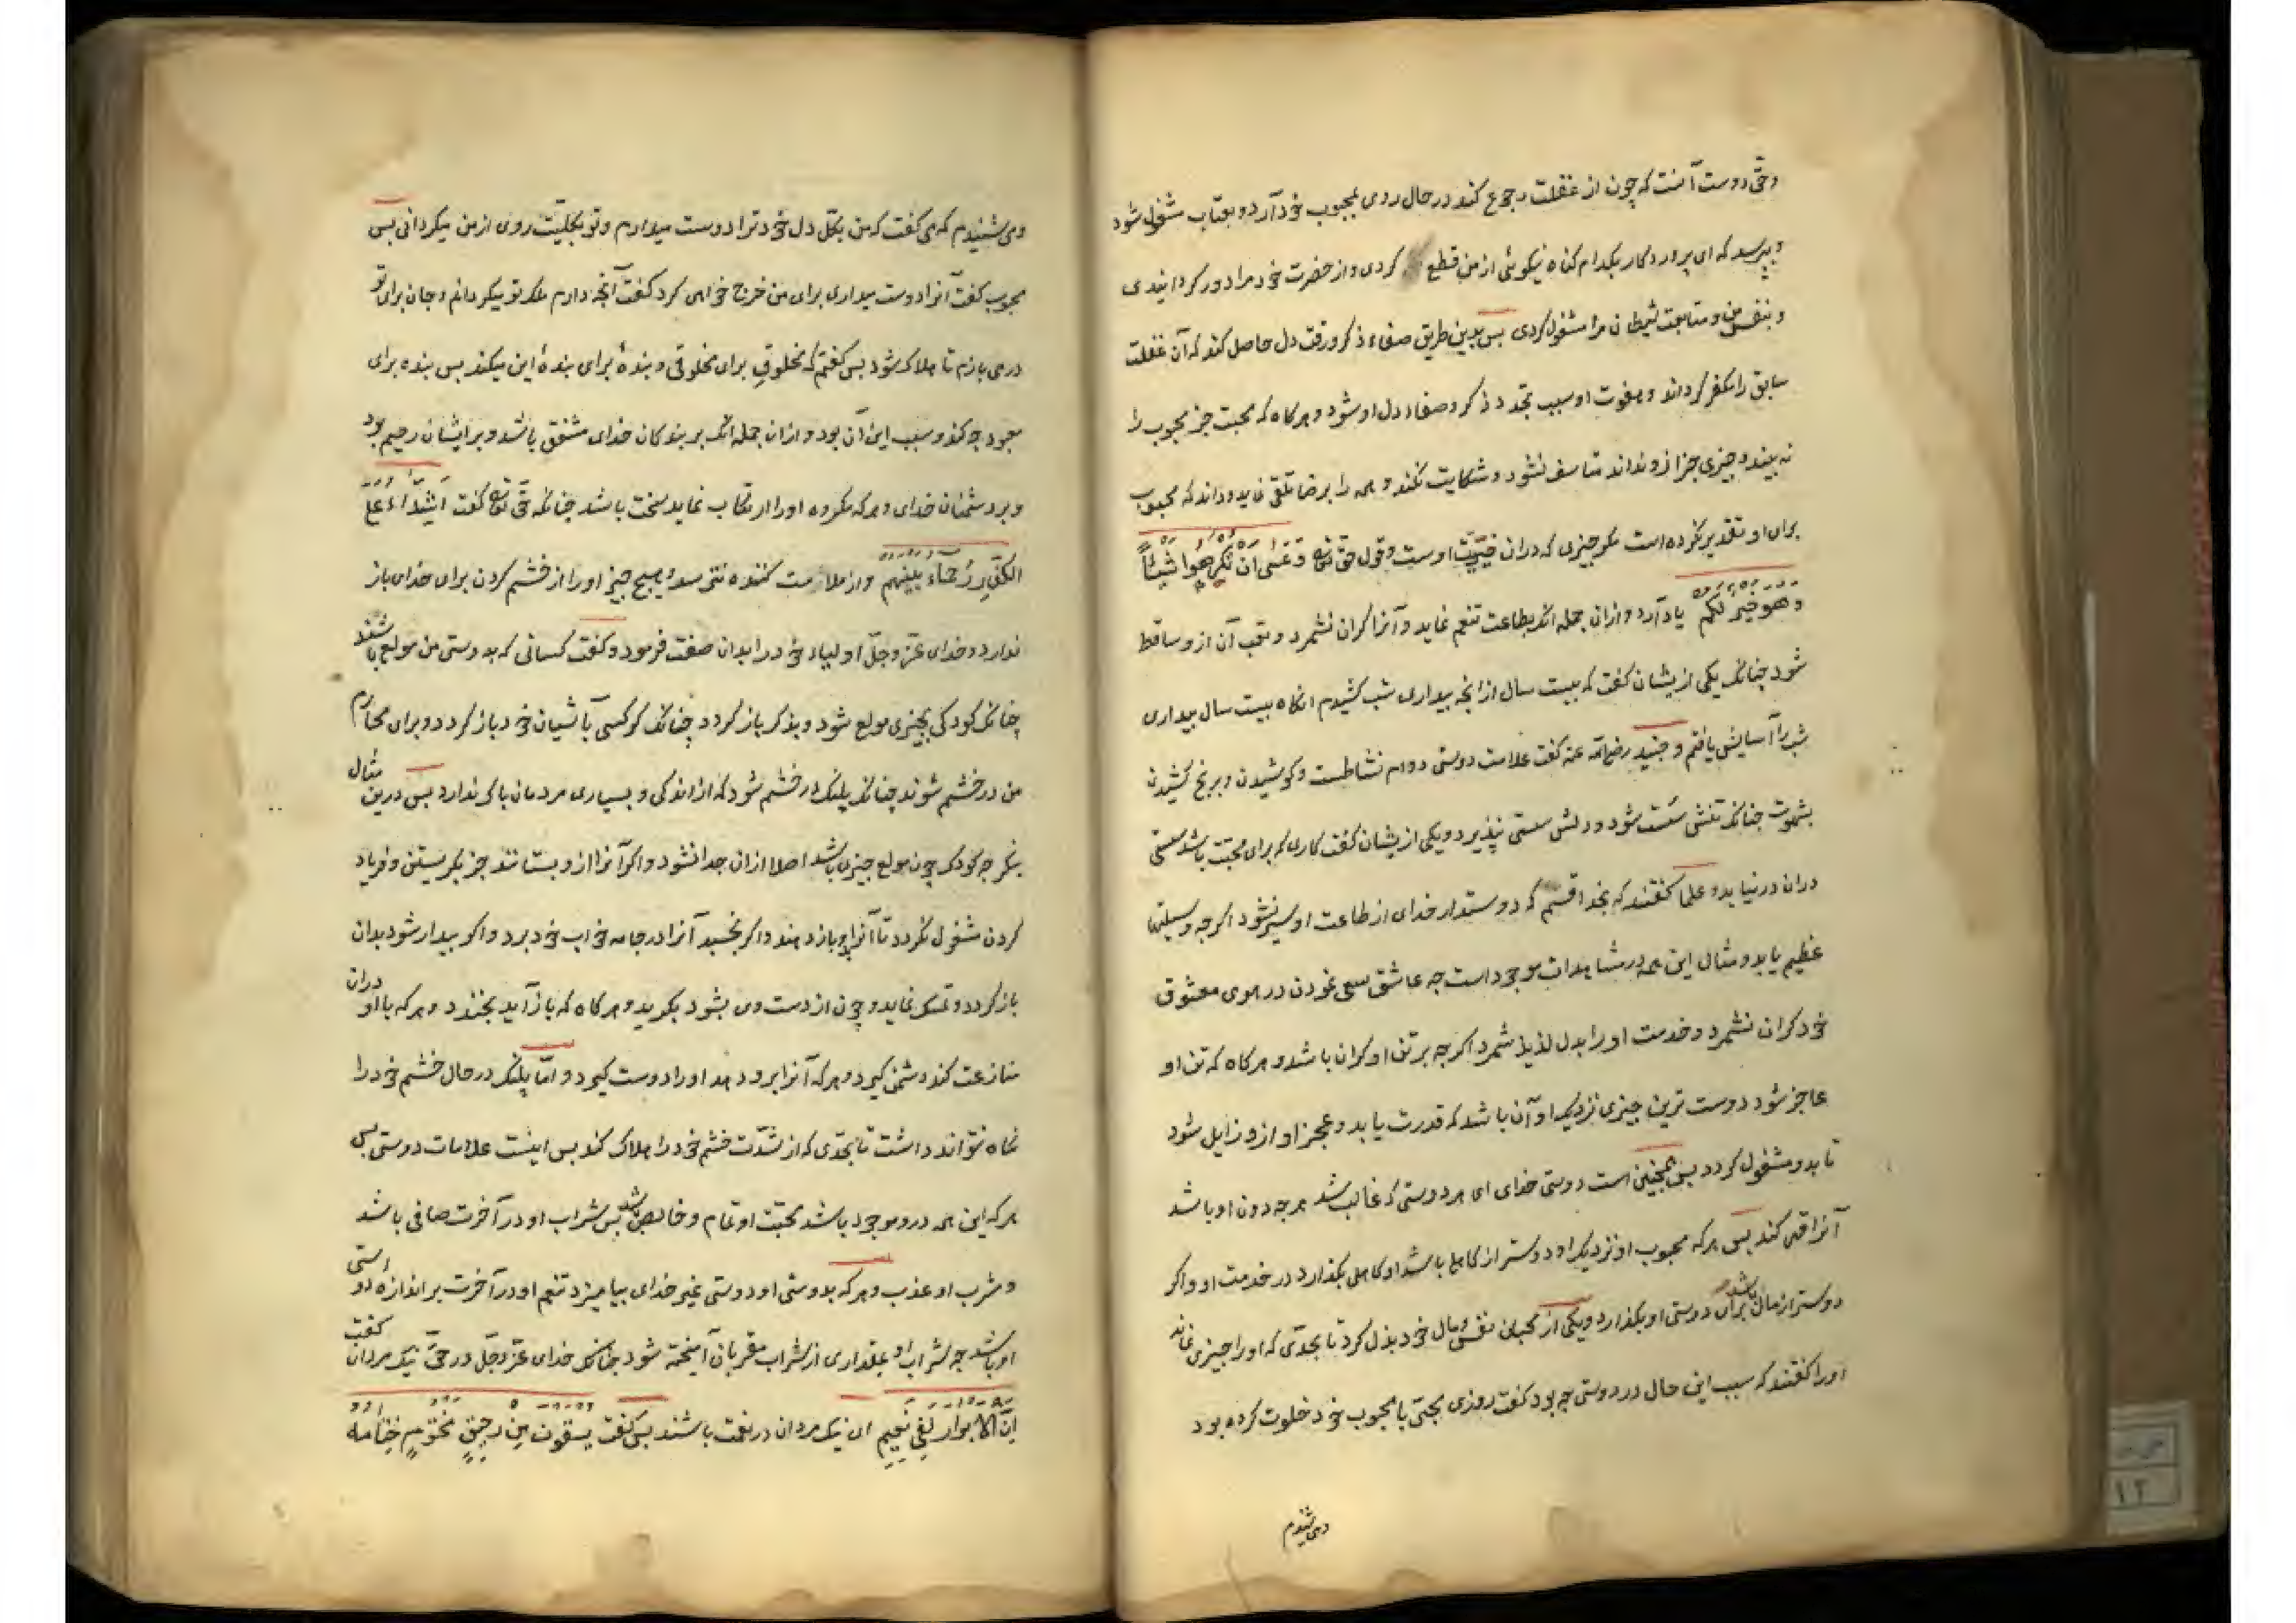 وحق دوست آنست که چون از غفلت رجوع کند در حال روی بمحبوب خود آرد و بعتاب مشغول شود
و بپرسد که ای پروردکار بکدام کناه نیکوئی از من قطع کردی و از حضرت خود مرا دور کردانیدی
و بنفس من و متابعت شیطان مرا مشغول کردی پس بدین طریق صفاء ذکر و رقت دل حاصل کند که آن غفلت
سابق را مکفر کرداند و هفوت او سبب تجدد ذکر و صفاء دل او شود و هرکاه که محب جز محبوب را
نه بیند و چیزی جز ازو نداند متاسف نشود و شکایت نکند و همه را برضا تلقی نماید و داند که محبوب
برای او تقدیر نکرده است مکر چیزی که دران خیریت اوست و قول حق تعالی وَعَسٰی اَن تَکْرَهُوا شَیْئًا
وَهُوَ خَیْرٌ لَکُم یاد آرد و ازان جمله انکه بطاعت تنعم نماید و آنرا کران نشمرد و تعب آن ازو ساقط
شود چنانکه یکی ازیشان کفت که بیست سال از انچه بیداری شب کشیدم انکاه بیست سال بیداری
شب را آسایش یافتم و جنید رضی الله عنه کفت علامت دوستی دوام نشاطست و کوشیدن و برنج کشیدن
بشهوت چنانکه تنش سُست شود و دلش سستی نپذیرد و یکی ازیشان کفت کاری که برای محبت باشد سستی
دران درنیاید و علما کفتند که بخدا قسم که دوستدار خدای از طاعت او سیر نشود اکرچه وسیلتها
عظیم یابد و مثال این همه در مشاهدات موجود است چه عاشق سعی نمودن در هوی معشوق
خود کران نشمرد و خدمت او را بدل لذیذ شمرد اکرچه بر تن او کران باشد و هرکاه که تن او
عاجز شود دوست ترین چیزی نزدیک او آن باشد که قدرت یابد و عجز او ازو زایل شود
تا بدو مشغول کردد پس همچنین است دوستی خدای ای هر دوستی که غالب شد هرچه دون او باشد
آنرا قهر کند پس هرکه محبوب او نزدیک او دوستر از کاهلی باشد او کاهلی بکذارد در خدمت او و اکر
دوستر از مال باشد برای دوستی او بکذارد و یکی از محبان نفس و مال خود بذل کرد تا بحدّی که او را چیزی نماند
او را کفتند که سبب این حال در دوستی چه بود کفت روزی محبّی با محبوب خود خلوت کرده بود
ومی شنیدم
ومی شنیدم که می کفت که من بکلّ دل خود ترا دوست میدارم و تو بکلیّت روی از من میکردانی پس
محبوب کفت اکر مرا دوست میداری برای من خرج خواهی کرد کفت آنچه دارم ملک تو میکردانم و جان برای تو
در می بازم تا هلاک شود پس کفتم که مخلوقی برای مخلوقی و بندهٔ برای بندهٔ این میکند پس بنده برای
معبود چه کند و سبب این آن بود و ازان جمله انکه بر بندکان خدای مشفق باشد و بر ایشان رحیم بود
و بر دشمنان خدای و هرکه مکروه او را ارتکاب نماید سخت باشد چنانکه حق تعالی کفت اَشِدَّاءُ عَلَی
الکُفَّارِ رُحَمَاءُ بَینَهُم و از ملامت کننده نترسد و هیچ چیز او را از خشم کردن برای خدای باز
ندارد و خدای عزّ وجلّ اولیاء خود را بدان صفت فرمود و کفت کسانی که بدوستی من مولع باشند
چنانکه کودکی بچیزی مولع شود و بذکر باز کردد چنانکه کرکسی بآشیان خود باز کردد و برای محارم
من در خشم شوند چنانکه پلنک در خشم شود که از اندکی و بسیاری مردمان باک ندارد پس درین مثال
بنکر چه کودک چون مولع چیزی باشد اصلا ازان جدا نشود و اکر آنرا ازو بستانند جز بکریستن و فریاد
کردن مشغول نکردد تا آنرا بدو باز دهند و اکر بخسبد آنرا در جامه خواب خود برد و اکر بیدار شود بدان
باز کردد و تمسک نماید و چون از دست وی بشود بکرید و هرکاه که باز آید بخندد و هرکه با او دران
منازعت کند دشمن کیرد و هرکه آنرا برو دهد او را دوست کیرد و امّا پلنک در حال خشم خود را
نکاه نتواند داشت تا بحدّی که از شدّت خشم خود را هلاک کند پس اینست علامات دوستی پس
هرکه این همه درو موجود باشد محبّت او تمام و خالص باشد پس شراب او در آخرت صافی باشد
و مشرب او عذب و هرکه بدوستی او دوستی غیر خدای بیامیزد تنعم او در آخرت بر اندازه دوستی
او باشد چه شراب او بمقداری از شراب مقربان آمیخته شود چنانکه خدای عزّ وجلّ در حق نیک مردان کفت
اِنَّ الاَبرَارَ لَفِی نَعِیمٍ ای نیک مردان در نعمت باشند پس کفت یُسقَونَ مِن رَحِیقٍ مَختُومٍ خِتَامُهُ